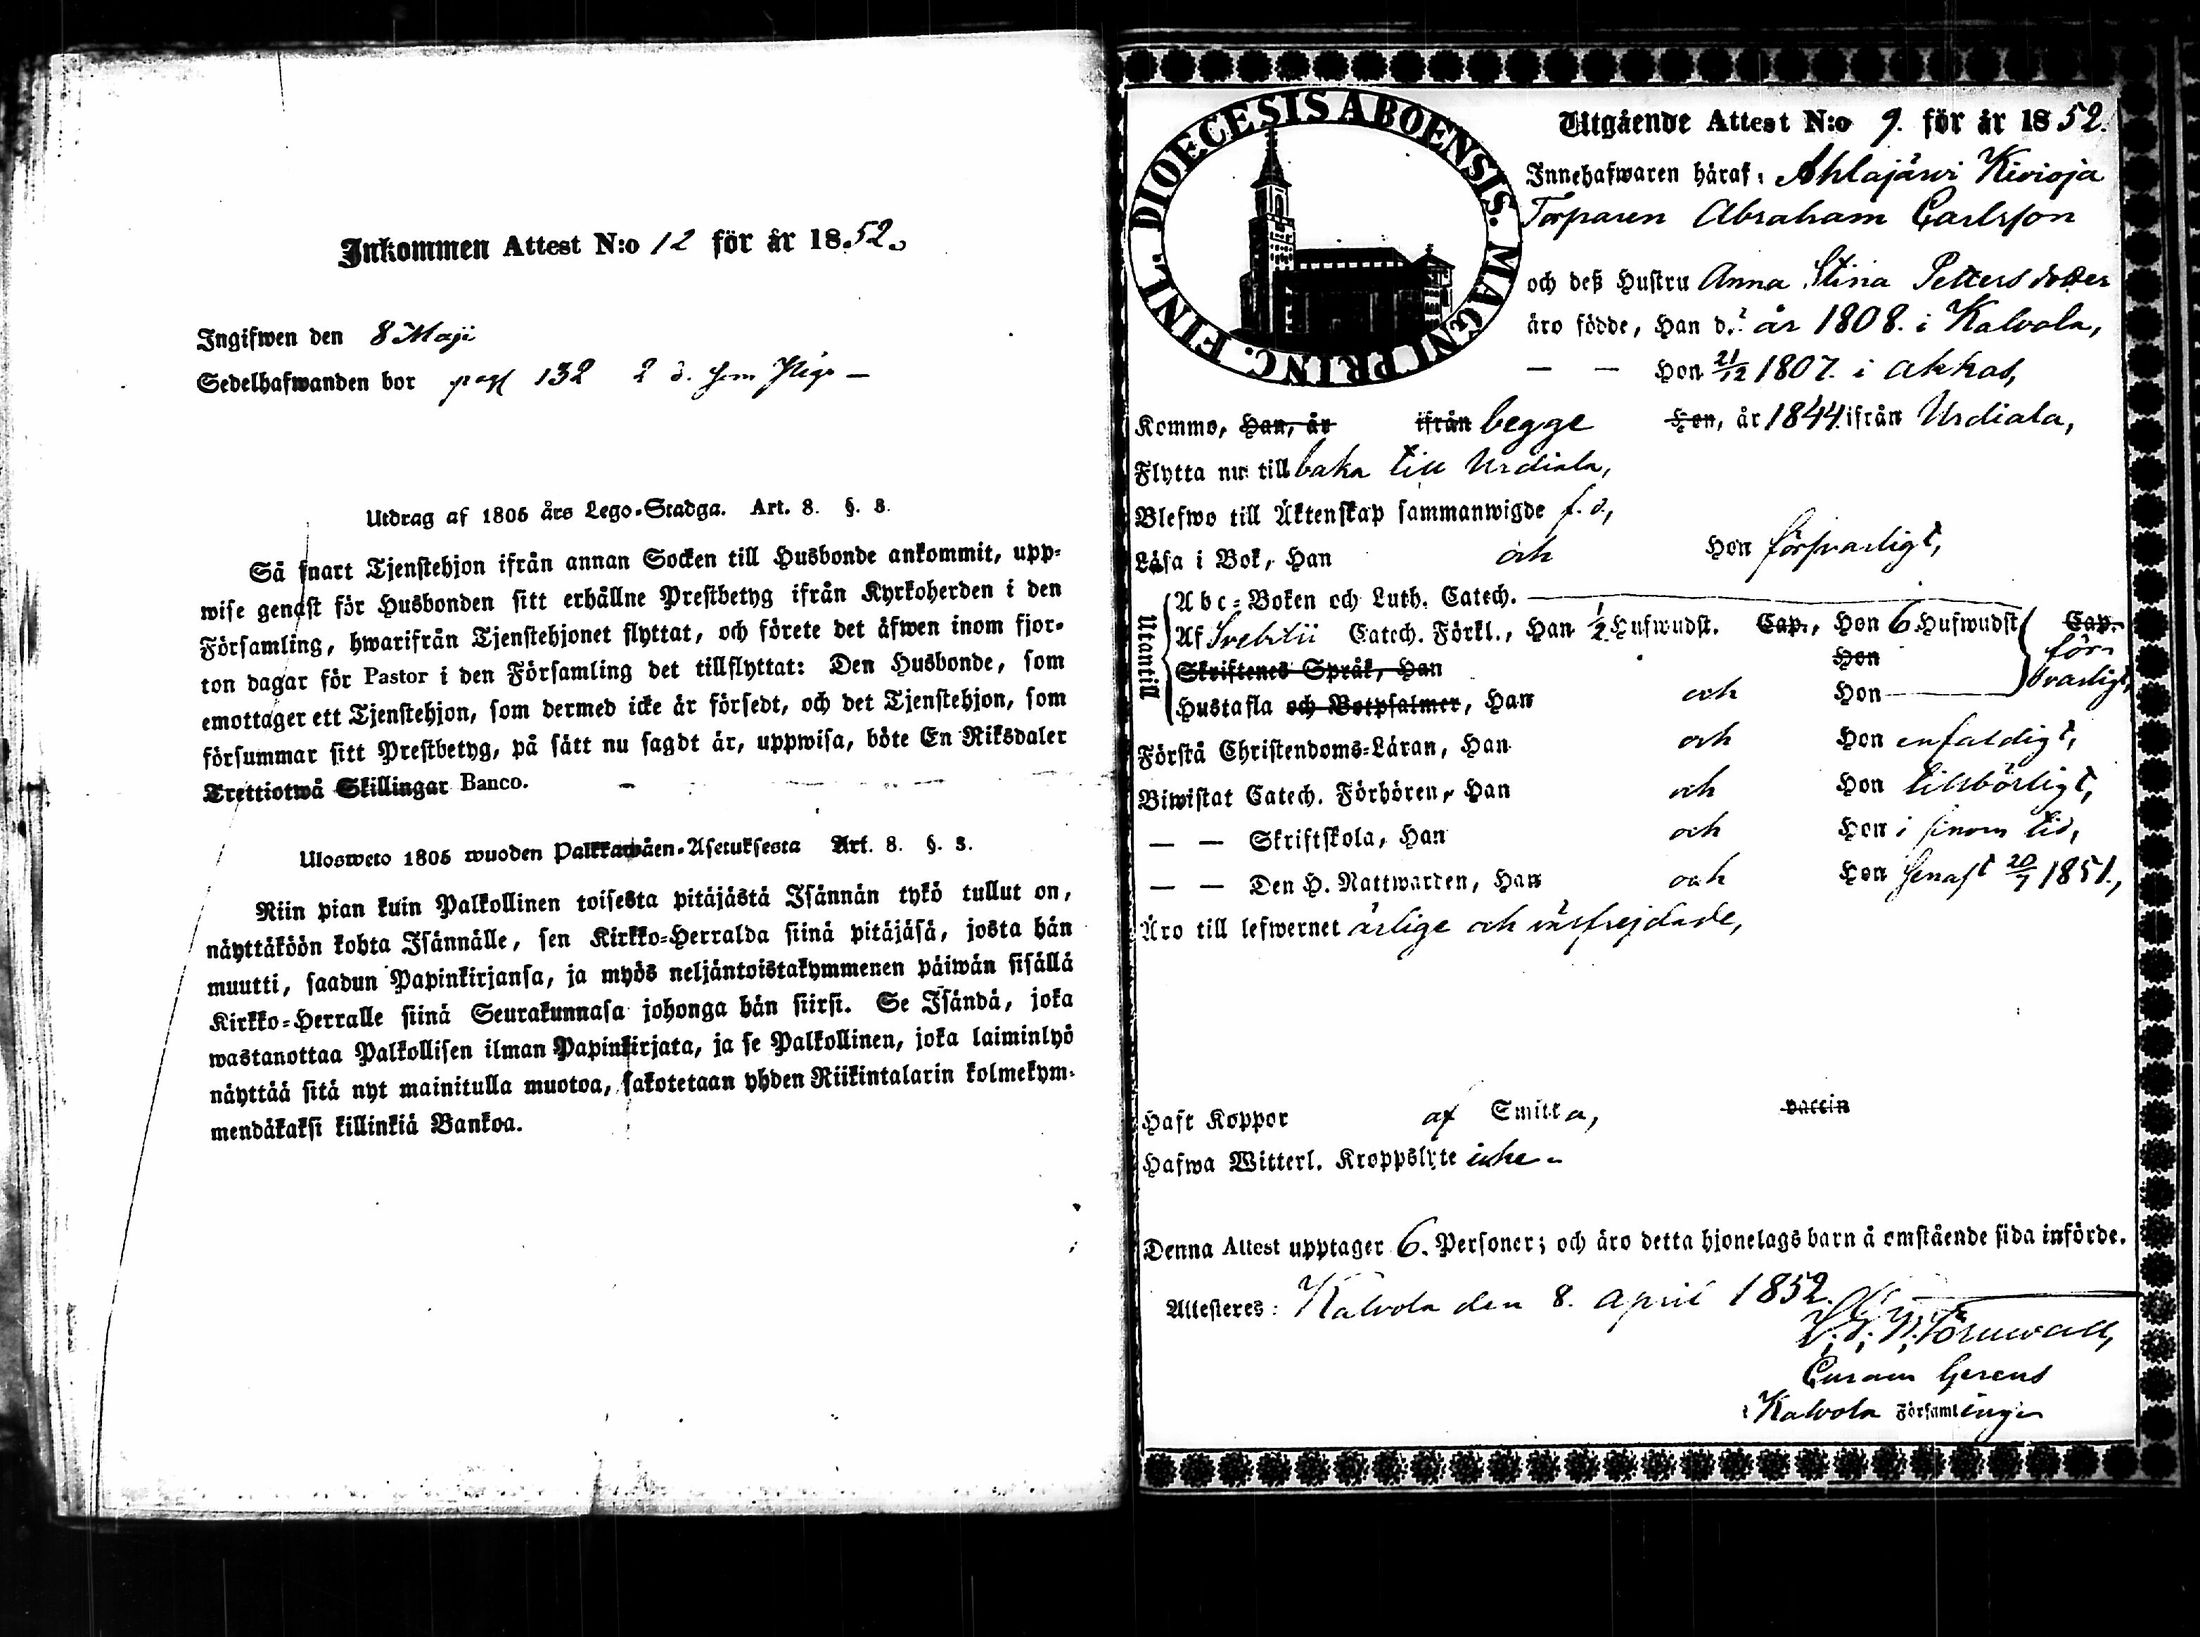 Inkommen Attest N:o 12 för år 1852.
Ingifwen den 8 Maji
Sedelhafwanden bor pag 132
Utdrag af 1805 års Lego-Stadga. Art. 8. §. 3.
Så snart Tjenstehjon ifrån annan Socken till Husbonde ankommit, upp-
wise genast för Husbonden sitt erhållne Prestbetyg ifrån Kyrkoherden i den
Församling, hwarifrån Tjenstehjonet flyttat, och förete det äfwen inom fjor-
ton dagar för Pastor i den Församling det tillflyttat: Den Husbonde, som
emottager ett Tjenstehjon, som dermed icke är försedt, och det Tjenstehjon, som
försummar sitt Prestbetyg, på sätt nu sagdt är, uppwisa, böte En Riksdaler
Trettiotwå Skillingar Banco.
Ulosweto 1805 wuoden Palkkawäen-Asetuksesta Art. 8. §. 3.
Niin pian kuin Palkollinen toisesta pitäjästä Isännän tykö tullut on,
näyttäköön kohta Isännälle, sen Kirkko-Herralda siinä pitäjäsä, josta hän
muutti, saadun Papinkirjansa, ja myös neljäntoistakymmenen päiwän sisällä
Kirkko-Herralle siinä Seurakunnasa johonga hän siirsi. Se Isändä, joka
wastanottaa Palkollisen ilman Papinkirjata, ja se Palkollinen, joka laiminlyö
näyttää sitä nyt mainitulla muotoa, sakotetaan yhden Riikintalarin kolmekym-
mendäkaksi killinkiä Bankoa.
FINL. DIOECESIS ABOENSIS. MAGNI PRINC.
Utgående Attest N:o 9. för år 1852.
Innehafwaren häraf: Ahlajärvi Kivioja
Torparen Abraham Carlsson
och deß Hustru Anna Stina Petters dotter
äro födde, Han d. år 1808. i Kalvola,
— — Hon 21/12 1807. i Akkas,
Kommo, Han, år ifrån begge Hon, år 1844 ifrån Urdiala,
Flytta nu till baka till Urdiala,
Blefwo till Äktenskap sammanwigde f. d.,
Läsa i Bok, Han och Hon försvarligt,
Utantill
Abc-Boken och Luth. Catech.
Af Svebilii Catech. Förkl., Han 1/2 Hufwudst. Cap., Hon 6 Hufwudst. Cap.
Skriftenes Språk, Han Hon för-
svarligt,
Hustafla och Botpsalmer, Han och Hon
Förstå Christendoms-Läran, Han och Hon enfaldigt,
Biwistat Catech. Förhören, Han och Hon tillbörligt,
— — Skriftskola, Han och Hon i sinom tid,
— — Den H. Nattwarden, Han och Hon senast 20/7 1851.,
Äro till lefwernet ärlige och väsfrejdade,
Haft Koppor af Smitta, vaccin
Hafwa Witterl. Kroppslyte icke.
Denna Attest upptager 6. Personer; och äro detta hjonelags barn å omstående sida införde.
Attesteres: Kalvola den 8. April 1852.
Törnwall,
Curam Gerens
i Kalvola Församlinge